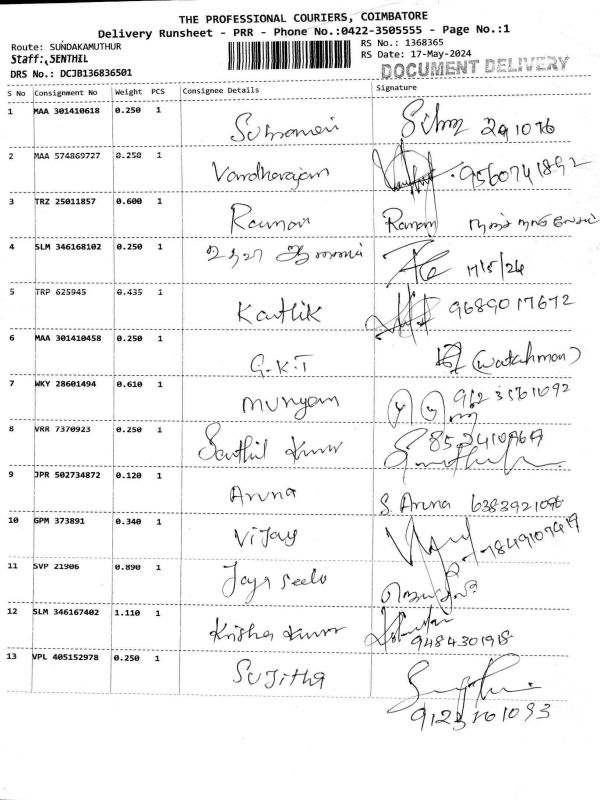 THE PROFESSIONAL COURIERS, COIMBATORE
Delivery Runsheet - PRR - Phone No.:0422-3505555 - Page No.:1
Route: SUNDAKAMUTHUR
RS No.: 1368365
Staff: SENTHIL
RS Date: 17-May-2024
DRS No.: DCJB136836501
DOCUMENT DELIVERY
S No Consignment No Weight PCS Consignee Details Signature
1 MAA 301410618 0.250 1
2 MAA 574869727 0.250 1 Vardharajan 9560741892
3 TRZ 25011857 0.600 1 Raman Raman
4 SLM 346168102 0.250 1 17/5/24
5 TRP 625945 0.435 1 Karthik 9689017672
6 MAA 301410458 0.250 1 G.K.T (Watchman)
7 WKY 28601494 0.610 1 Munyam
8 VRR 7370923 0.250 1 Senthil Kumar
9 JPR 502734872 0.120 1 Aruna S. Aruna 6383921096
10 GPM 373891 0.340 1 Vijay
11 SVP 21906 0.890 1
12 SLM 346167402 1.110 1 Krisha Kumar 9484301918
13 VPL 405152978 0.250 1 Sujitha